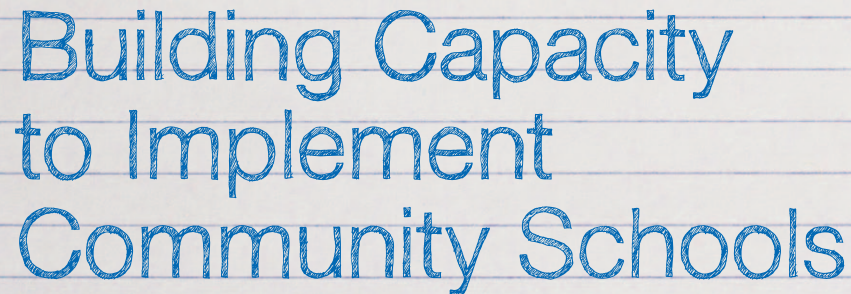 Building Capacity
to Implement
Community Schools